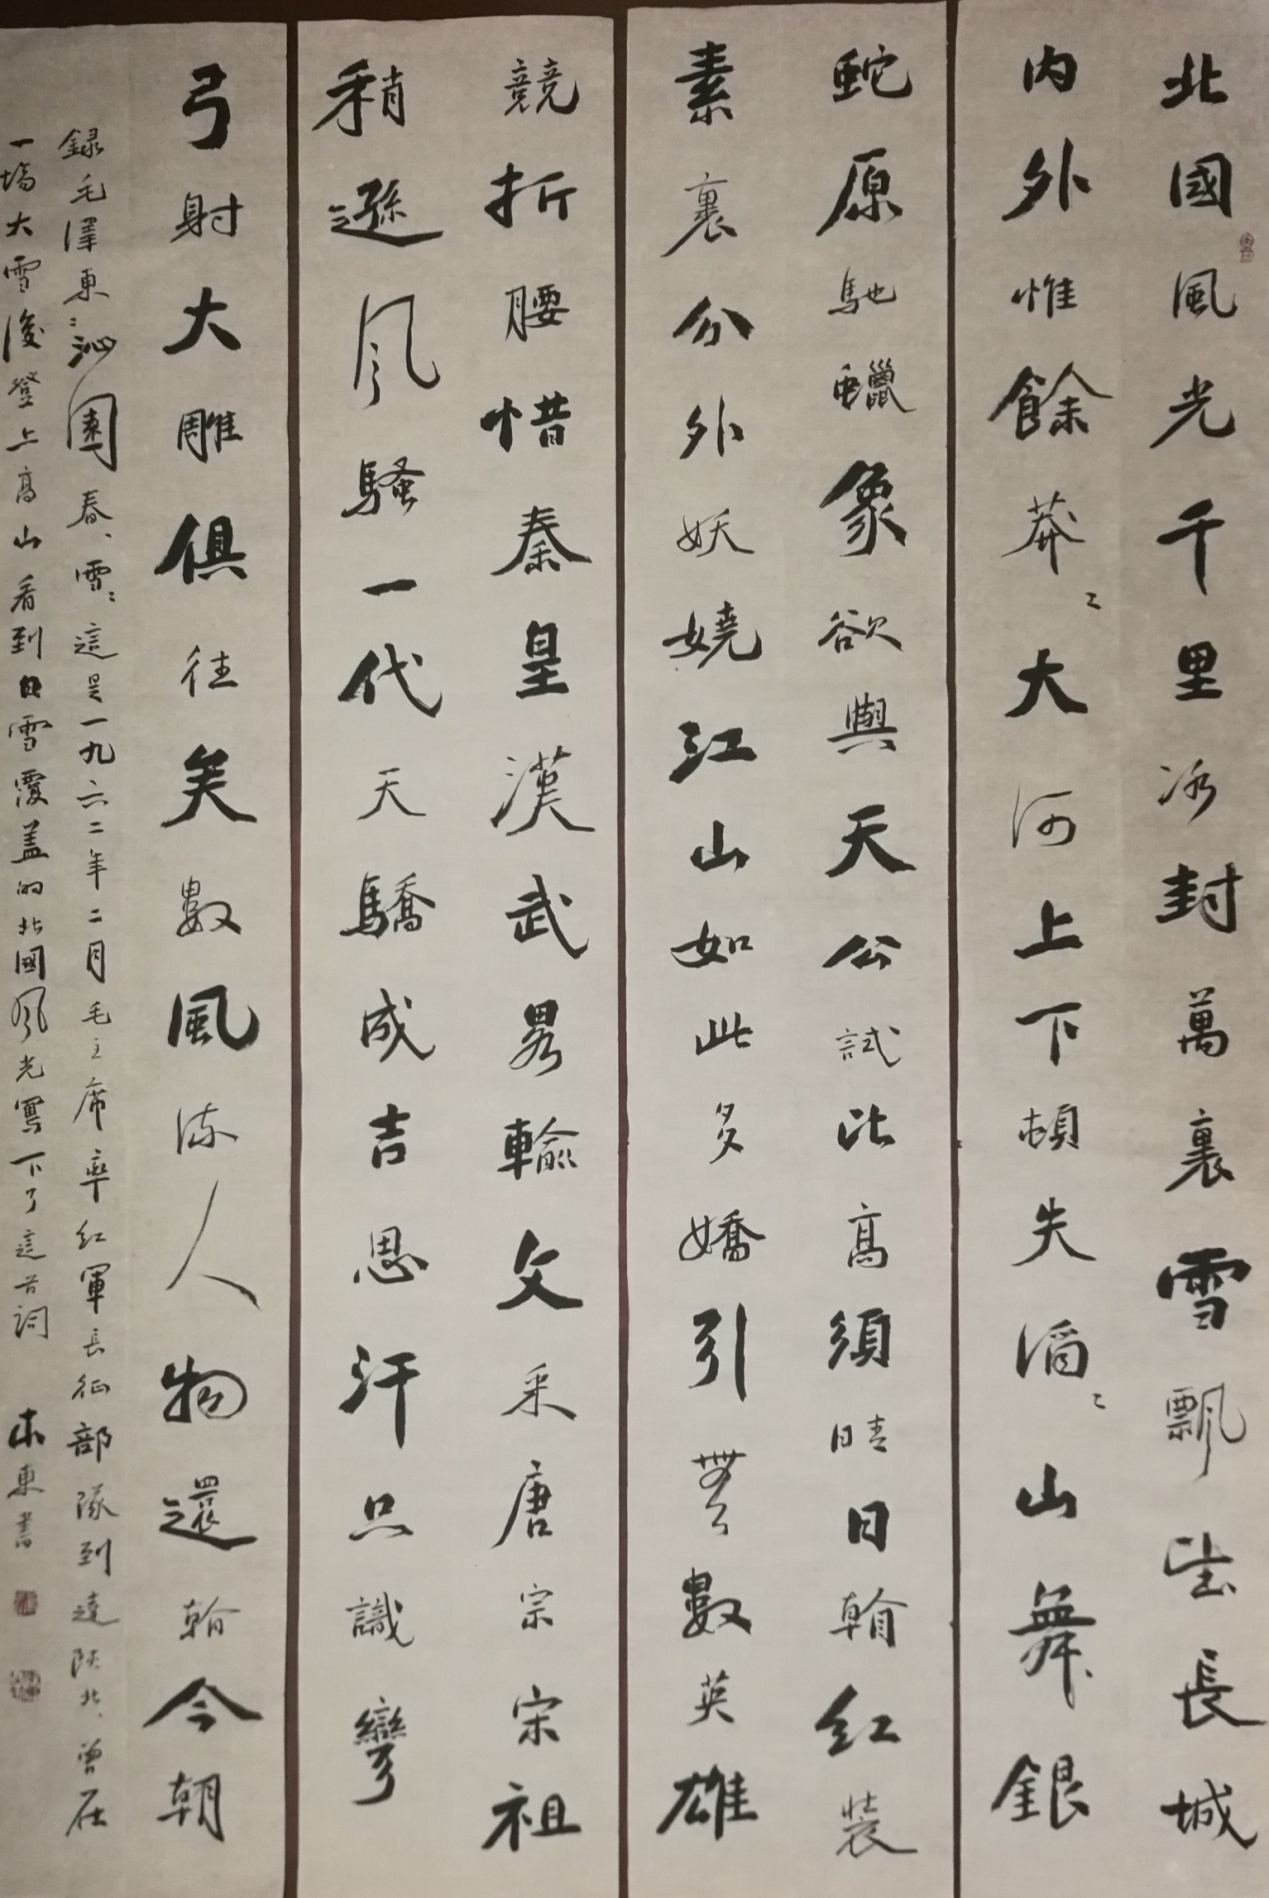 北國風光千里冰封萬裏雪飄望長城
內外惟餘莽〻大河上下頓失滔〻山舞銀
蛇原馳蠟象欲與天公試比高須晴日輸紅裝
素裏分外妖嬈江山如此多嬌引無數英雄
競折腰惜秦皇漢武畧輸文采唐宗宋祖
稍遜风騷一代天驕成吉思汗只識彎
弓射大雕俱往矣數風流人物還輸今朝
録毛澤東:沁園春、雪:這是一九六二年二月毛主席率紅軍長征部隊到達陝北、曾在
一場大雪後登上高山看到白雪覆盖的北國风光寫下了這首詞 東書